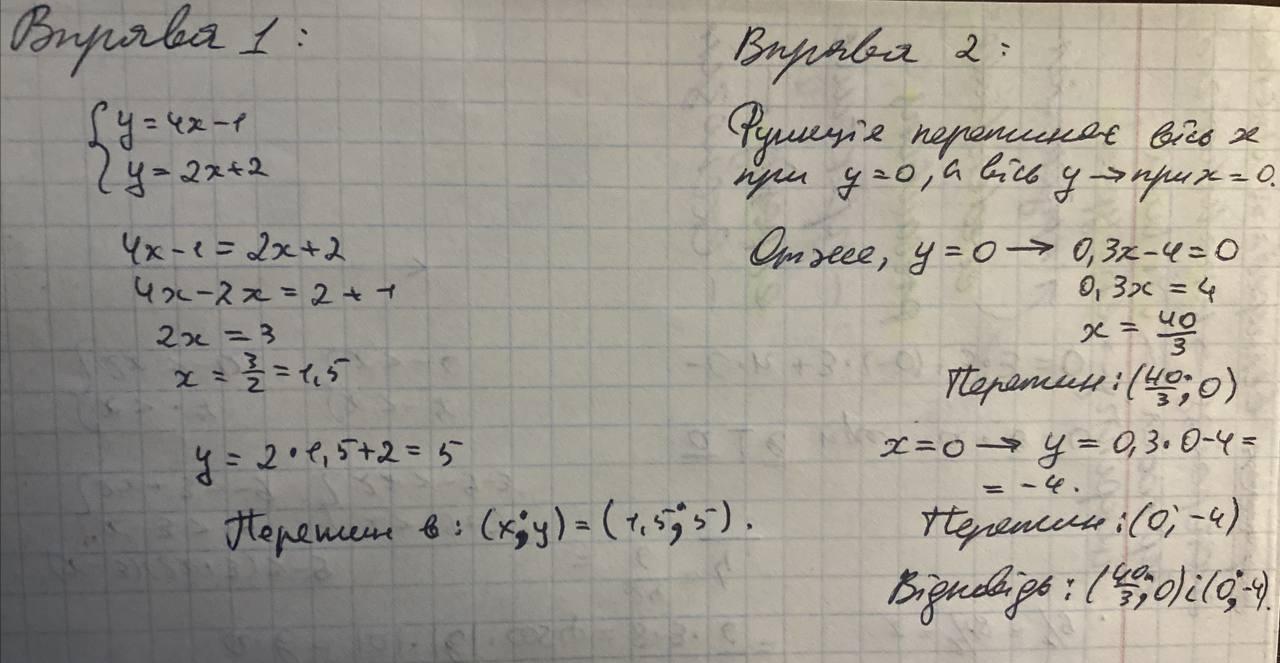 Вправа 1:
{ y = 4x - 1
{ y = 2x + 2
4x - 1 = 2x + 2
4x - 2x = 2 + 1
2x = 3
x = 3/2 = 1,5
y = 2 · 1,5 + 2 = 5
Перетин в: (x; y) = (1,5; 5).
Вправа 2:
Функція перетинає вісь x
при y = 0, а вісь y → при x = 0.
Отже, y = 0 → 0,3x - 4 = 0
0,3x = 4
x = 40/3
Перетин: (40/3; 0)
x = 0 → y = 0,3 · 0 - 4 =
= -4.
Перетин: (0; -4)
Відповідь: (40/3; 0) і (0; -4).